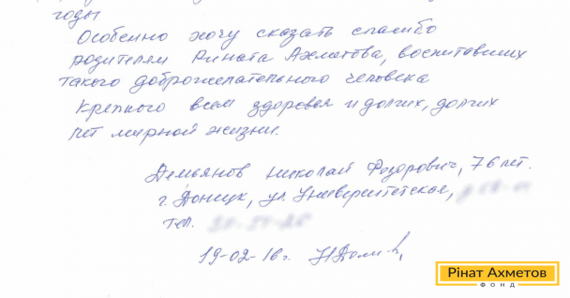 годы
Особенно хочу сказать спасибо
родителям Рината Ахметова, воспитавших
такого доброжелательного человека
Крепкого всем здоровья и долгих, долгих
лет мирной жизни.
Демьянов Николай Федорович, 76 лет.
г. Донецк, ул. Университетская,
тел.
19-02-16 г.
Рінат Ахметов
ФОНД